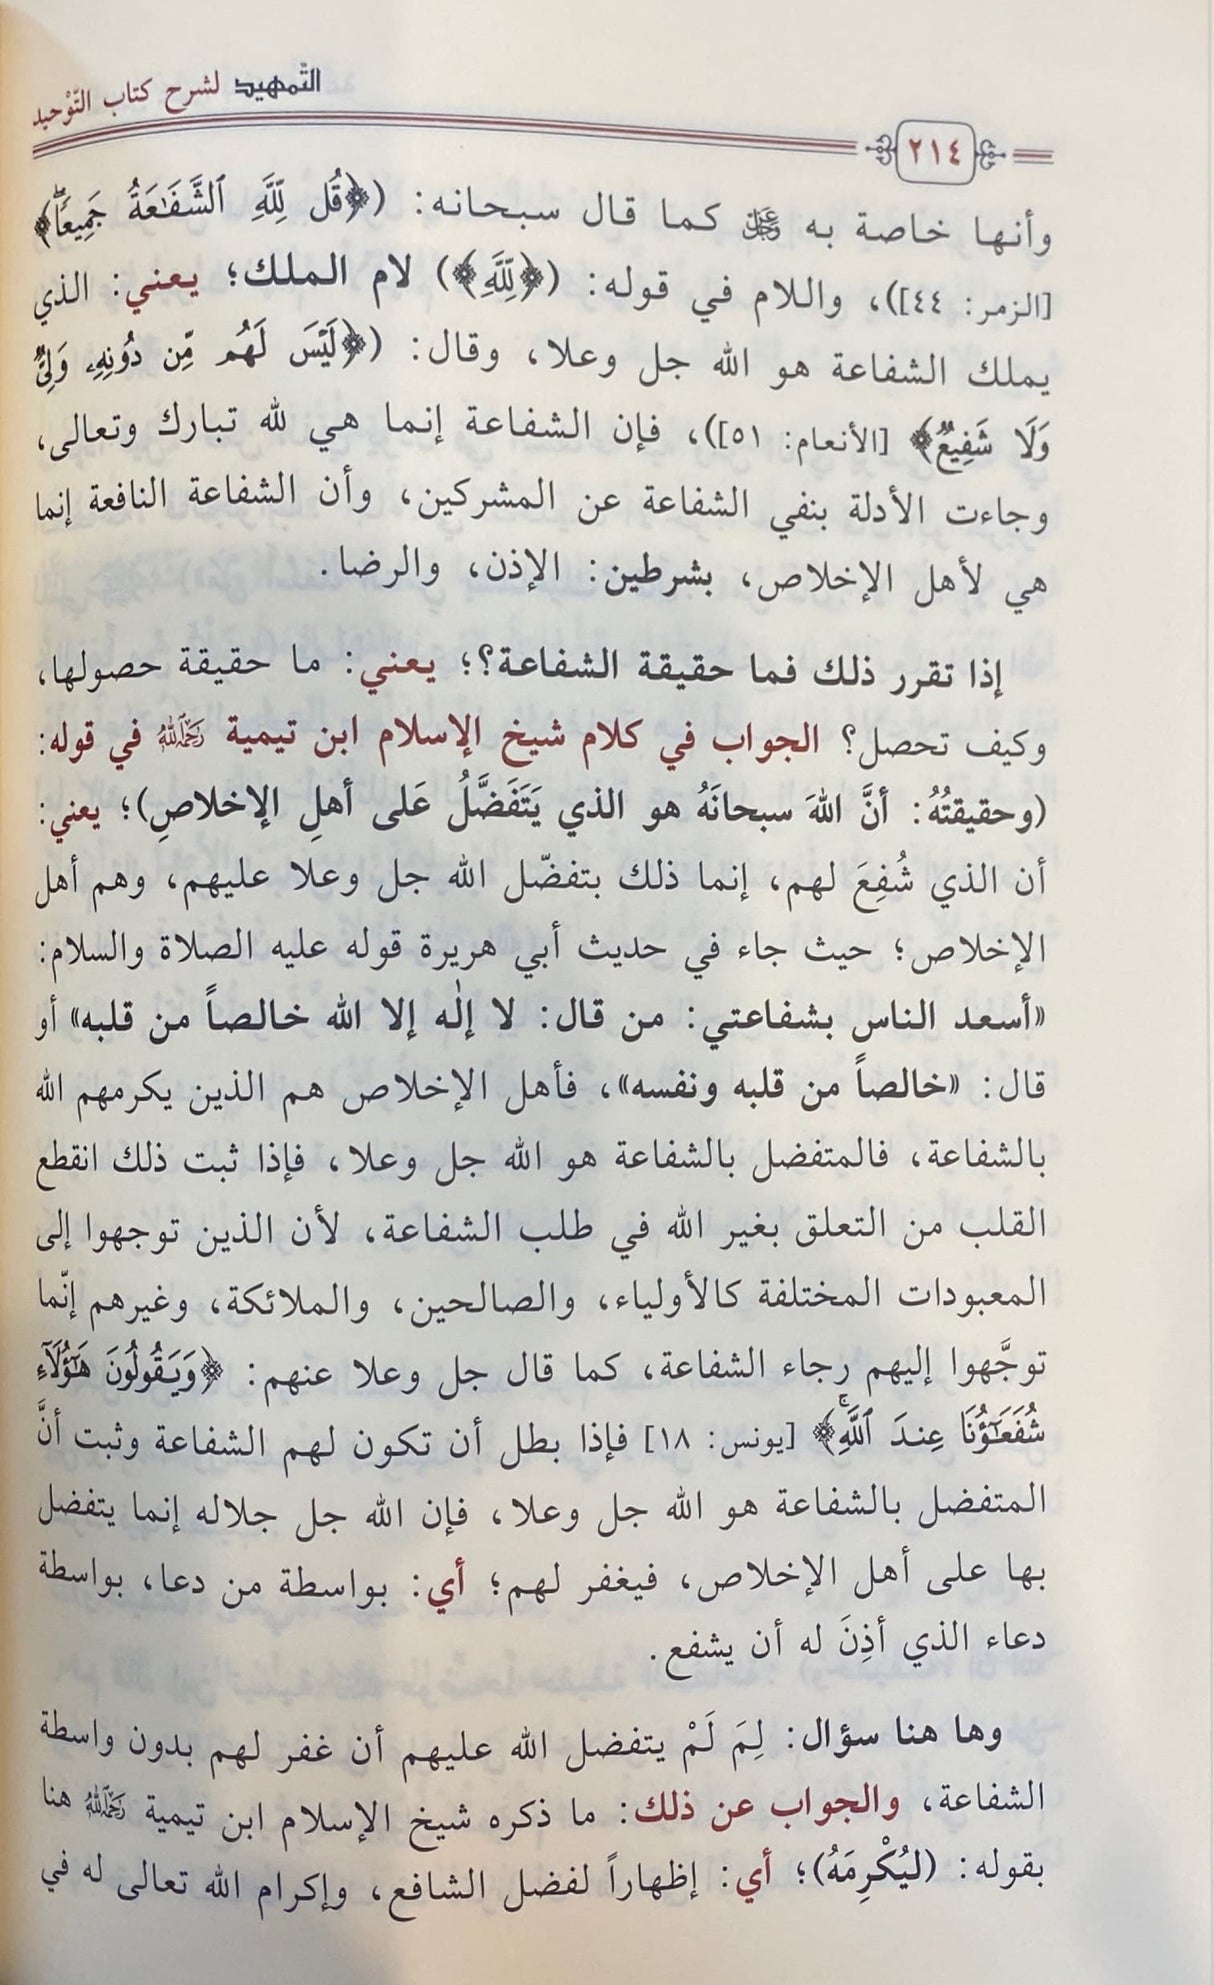 التمهيد لشرح كتاب التوحيد
٢١٤
وأنها خاصة به عز وجل كما قال سبحانه: (﴿قُل لِّلَّهِ ٱلشَّفَٰعَةُ جَمِيعٗاۖ﴾
[الزمر: ٤٤])، واللام في قوله: (﴿لِّلَّهِ﴾) لام الملك؛ يعني: الذي
يملك الشفاعة هو الله جل وعلا، وقال: (﴿لَيۡسَ لَهُم مِّن دُونِهِۦ وَلِيّٞ
وَلَا شَفِيعٞ﴾ [الأنعام: ٥١])، فإن الشفاعة إنما هي لله تبارك وتعالى،
وجاءت الأدلة بنفي الشفاعة عن المشركين، وأن الشفاعة النافعة إنما
هي لأهل الإخلاص، بشرطين: الإذن، والرضا.
إذا تقرر ذلك فما حقيقة الشفاعة؟؛ يعني: ما حقيقة حصولها،
وكيف تحصل؟ الجواب في كلام شيخ الإسلام ابن تيمية رحمه الله في قوله:
(وحقيقتُهُ: أنَّ اللهَ سبحانَهُ هو الذي يَتَفَضَّلُ عَلى أهلِ الإخلاصِ)؛ يعني:
أن الذي شُفِعَ لهم، إنما ذلك بتفضّل الله جل وعلا عليهم، وهم أهل
الإخلاص؛ حيث جاء في حديث أبي هريرة قوله عليه الصلاة والسلام:
«أسعد الناس بشفاعتي: من قال: لا إلٰه إلا الله خالصاً من قلبه» أو
قال: «خالصاً من قلبه ونفسه»، فأهل الإخلاص هم الذين يكرمهم الله
بالشفاعة، فالمتفضل بالشفاعة هو الله جل وعلا، فإذا ثبت ذلك انقطع
القلب من التعلق بغير الله في طلب الشفاعة، لأن الذين توجهوا إلى
المعبودات المختلفة كالأولياء، والصالحين، والملائكة، وغيرهم إنّما
توجَّهوا إليهم رجاء الشفاعة، كما قال جل وعلا عنهم: ﴿وَيَقُولُونَ هَٰٓؤُلَآءِ
شُفَعَٰٓؤُنَا عِندَ ٱللَّهِۚ﴾ [يونس: ١٨] فإذا بطل أن تكون لهم الشفاعة وثبت أنَّ
المتفضل بالشفاعة هو الله جل وعلا، فإن الله جل جلاله إنما يتفضل
بها على أهل الإخلاص، فيغفر لهم؛ أي: بواسطة من دعا، بواسطة
دعاء الذي أذِنَ له أن يشفع.
وها هنا سؤال: لِمَ لَمْ يتفضل الله عليهم أن غفر لهم بدون واسطة
الشفاعة، والجواب عن ذلك: ما ذكره شيخ الإسلام ابن تيمية رحمه الله هنا
بقوله: (ليُكْرِمَهُ)؛ أي: إظهاراً لفضل الشافع، وإكرام الله تعالى له في